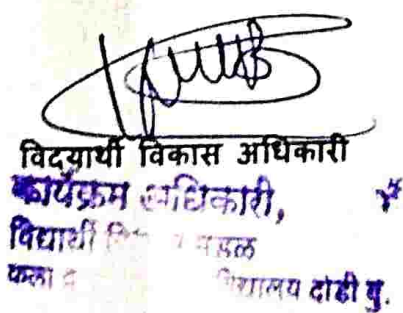 विद्यार्थी विकास अधिकारी
कार्यक्रम अधिकारी,
विद्यार्थी मंडळ
कला व दोंडी बु.